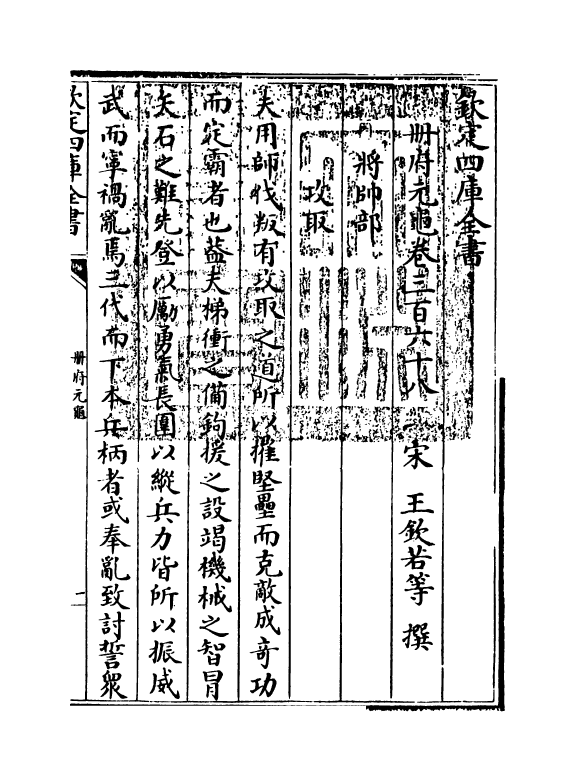 欽定四庫全書
冊府元龜卷三百六十八
宋 王欽若等 撰
將帥部
攻取
夫用師伐叛有攻取之道所以摧堅壘而克敵成竒功
而定霸者也葢夫梯衝之備鉤援之設竭機械之智冒
矢石之難先登以厲勇氣長圍以縱兵力皆所以振威
武而寧禍亂焉三代而下本兵柄者或奉亂致討誓衆
欽定四庫全書
冊府元龜